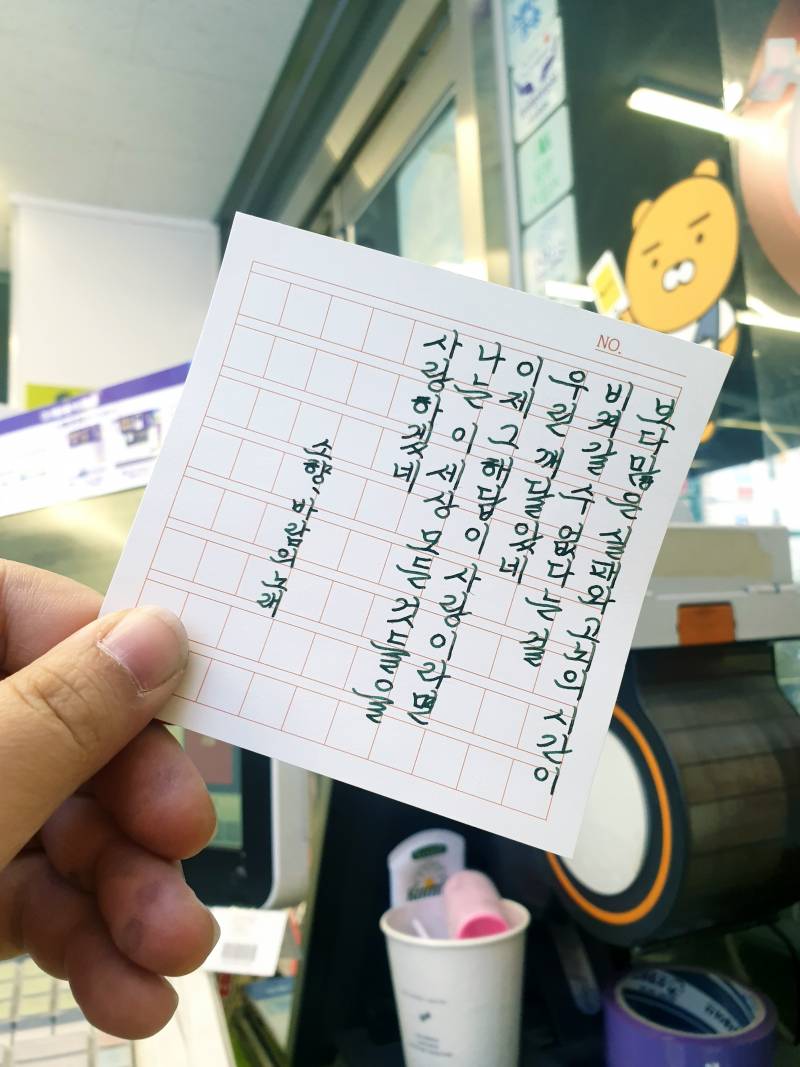 NO.
보다 많은 실패와 고뇌의 시간이
비켜갈 수 없다는 걸
우린 깨달았네
이제 그 해답이 사랑이라면
나는 이 세상 모든 것들을
사랑하겠네
소향, 바람의 노래